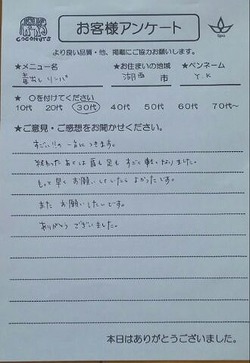 COCONUTS
お客様アンケート
より良い品質・他、掲載にご協力お願いします。
★メニュー名 ★お住まいの地域 ★ペンネーム
リンパ 湖西 市 Y.K
★ ○を付けてください
10代 20代 30代 40代 50代 60代 70代~
★ご意見・ご感想をお聞かせください。
すごいの一言につきます。
終わったあとは肩も足もすごく軽くなりました。
もっと早くお願いしていたらよかったです。
また お願いしたいです。
ありがとうございました。
本日はありがとうございました。